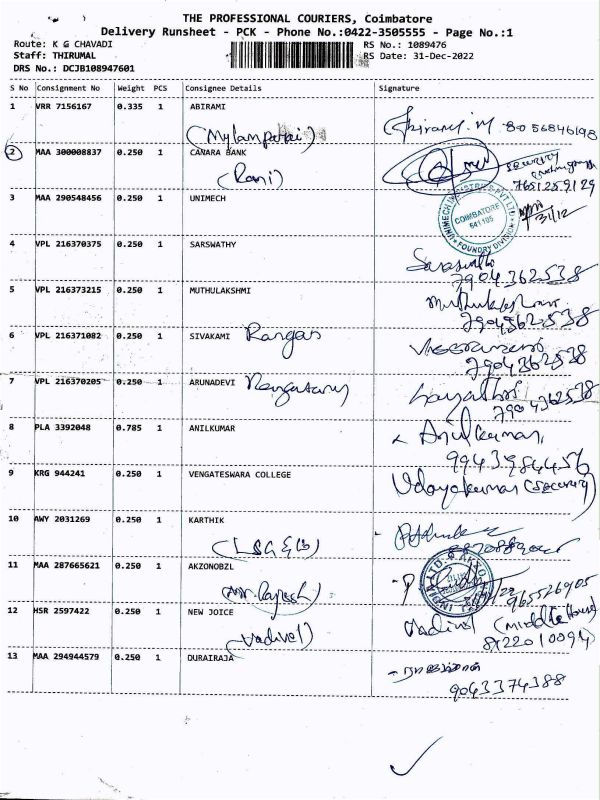 THE PROFESSIONAL COURIERS, Coimbatore
Delivery Runsheet - PCK - Phone No.:0422-3505555 - Page No.:1
Route: K G CHAVADI RS No.: 1089476
Staff: THIRUMAL RS Date: 31-Dec-2022
DRS No.: DCJB108947601
S No Consignment No Weight PCS Consignee Details Signature
1 VRR 7156167 0.335 1 ABIRAMI
8056846198
2 MAA 300008837 0.250 1 CANARA BANK
(Rani) security
7651259129
3 MAA 290548456 0.250 1 UNIMECH
UNIMECH INDUSTRIES PVT LTD COIMBATORE 641 105 FOUNDRY DIVISION 31/12
4 VPL 216370375 0.250 1 SARSWATHY
7904362538
5 VPL 216373215 0.250 1 MUTHULAKSHMI
7904362538
6 VPL 216371082 0.250 1 SIVAKAMI Rangas
7904362538
7 VPL 216370205 0.250 1 ARUNADEVI
7904362538
8 PLA 3392048 0.785 1 ANILKUMAR Anilkumar,
9943984456
9 KRG 944241 0.250 1 VENGATESWARA COLLEGE Udayakumar (Security)
10 AWY 2031269 0.250 1 KARTHIK
11 MAA 287665621 0.250 1 AKZONOBZL
(Mr. Rajesh) 965526905
12 HSR 2597422 0.250 1 NEW JOICE
(Vadivel) Vadivel (Middle House)
8122010094
13 MAA 294944579 0.250 1 DURAIRAJA
9043374388